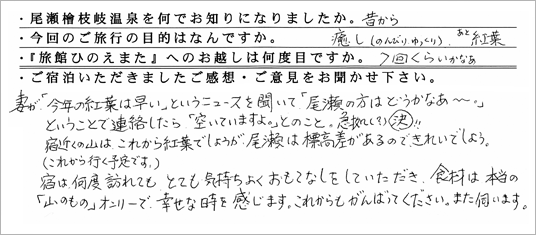 ・尾瀬檜枝岐温泉を何でお知りになりましたか。昔から
・今回のご旅行の目的はなんですか。 癒し(のんびり、ゆっくり)、あと 紅葉
・『旅館ひのえまた』へのお越しは何度目ですか。 7回くらいかなあ
・ご宿泊いただきましたご感想・ご意見をお聞かせ下さい。
妻が「今年の紅葉は早い」というニュースを聞いて、「尾瀬の方はどうかなあ〜。」
ということで連絡したら「空いていますよ。」とのこと。急拠(?) 決!!
宿近くの山は、これから紅葉でしょうが、尾瀬は標高差があるのできれいでしょう。
(これから行く予定です。)
宿は、何度訪れても、とても気持ちよくおもてなしをしていただき、食材は本当の
「山のもの」オンリーで、幸せな時を感じます。これからもがんばってください。また伺います。